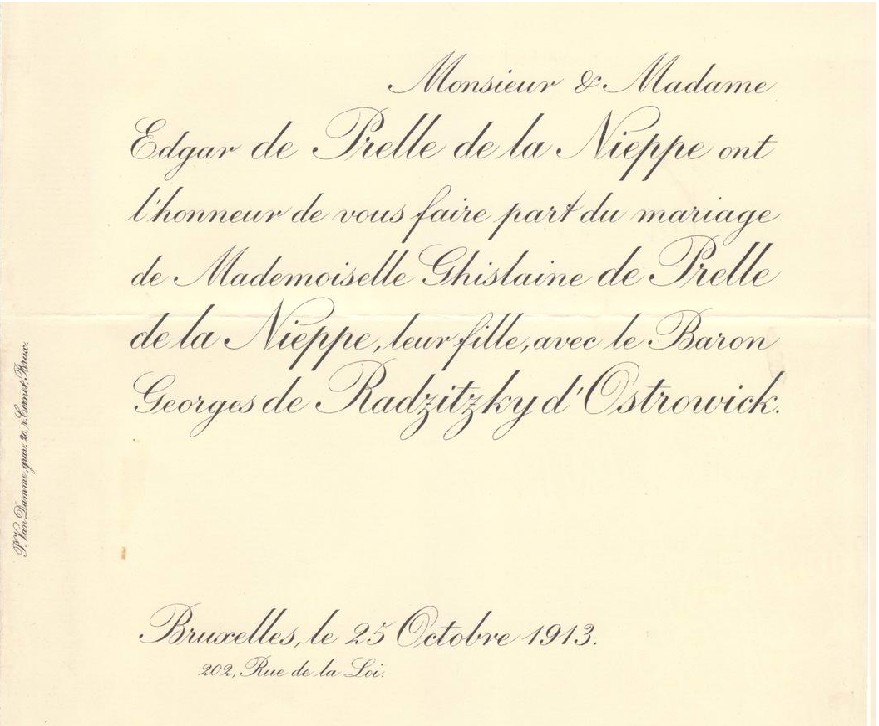 Monsieur & Madame
Edgar de Prelle de la Nieppe ont
l'honneur de vous faire part du mariage
de Mademoiselle Ghislaine de Prelle
de la Nieppe, leur fille, avec le Baron
Georges de Radzitzky d'Ostrowick.
Bruxelles, le 25 Octobre 1913.
202, Rue de la Loi.
Brux.